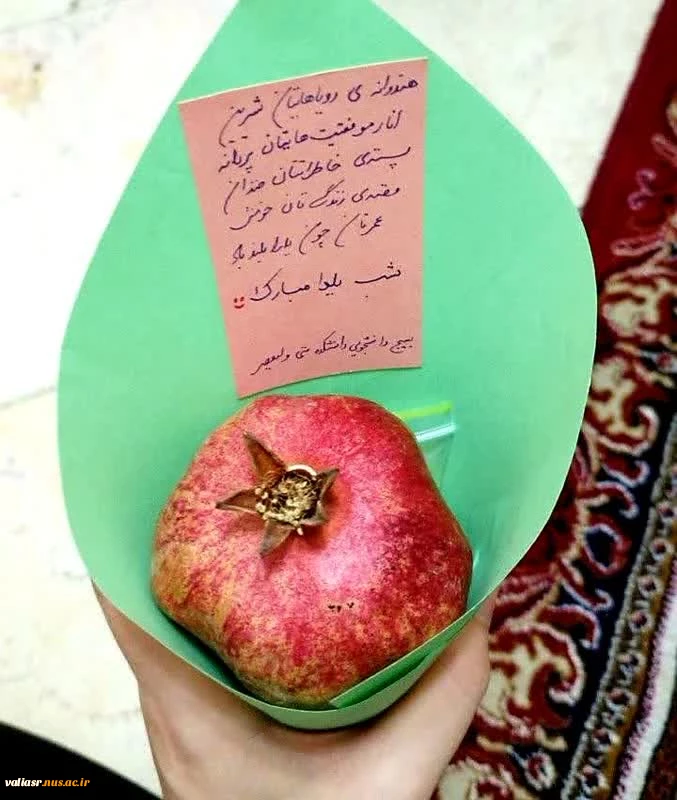 هندوانه ی رویاهایتان شیرین
انار موفقیت هایتان پردانه
پسته ی خاطراتتان خندان
قصه ی زندگی تان خوش
عمرتان چون یلدا بلند باد
شب یلدا مبارک!
بسیج دانشجویی دانشکده فنی ولیعصر
valiasr.nus.ac.ir